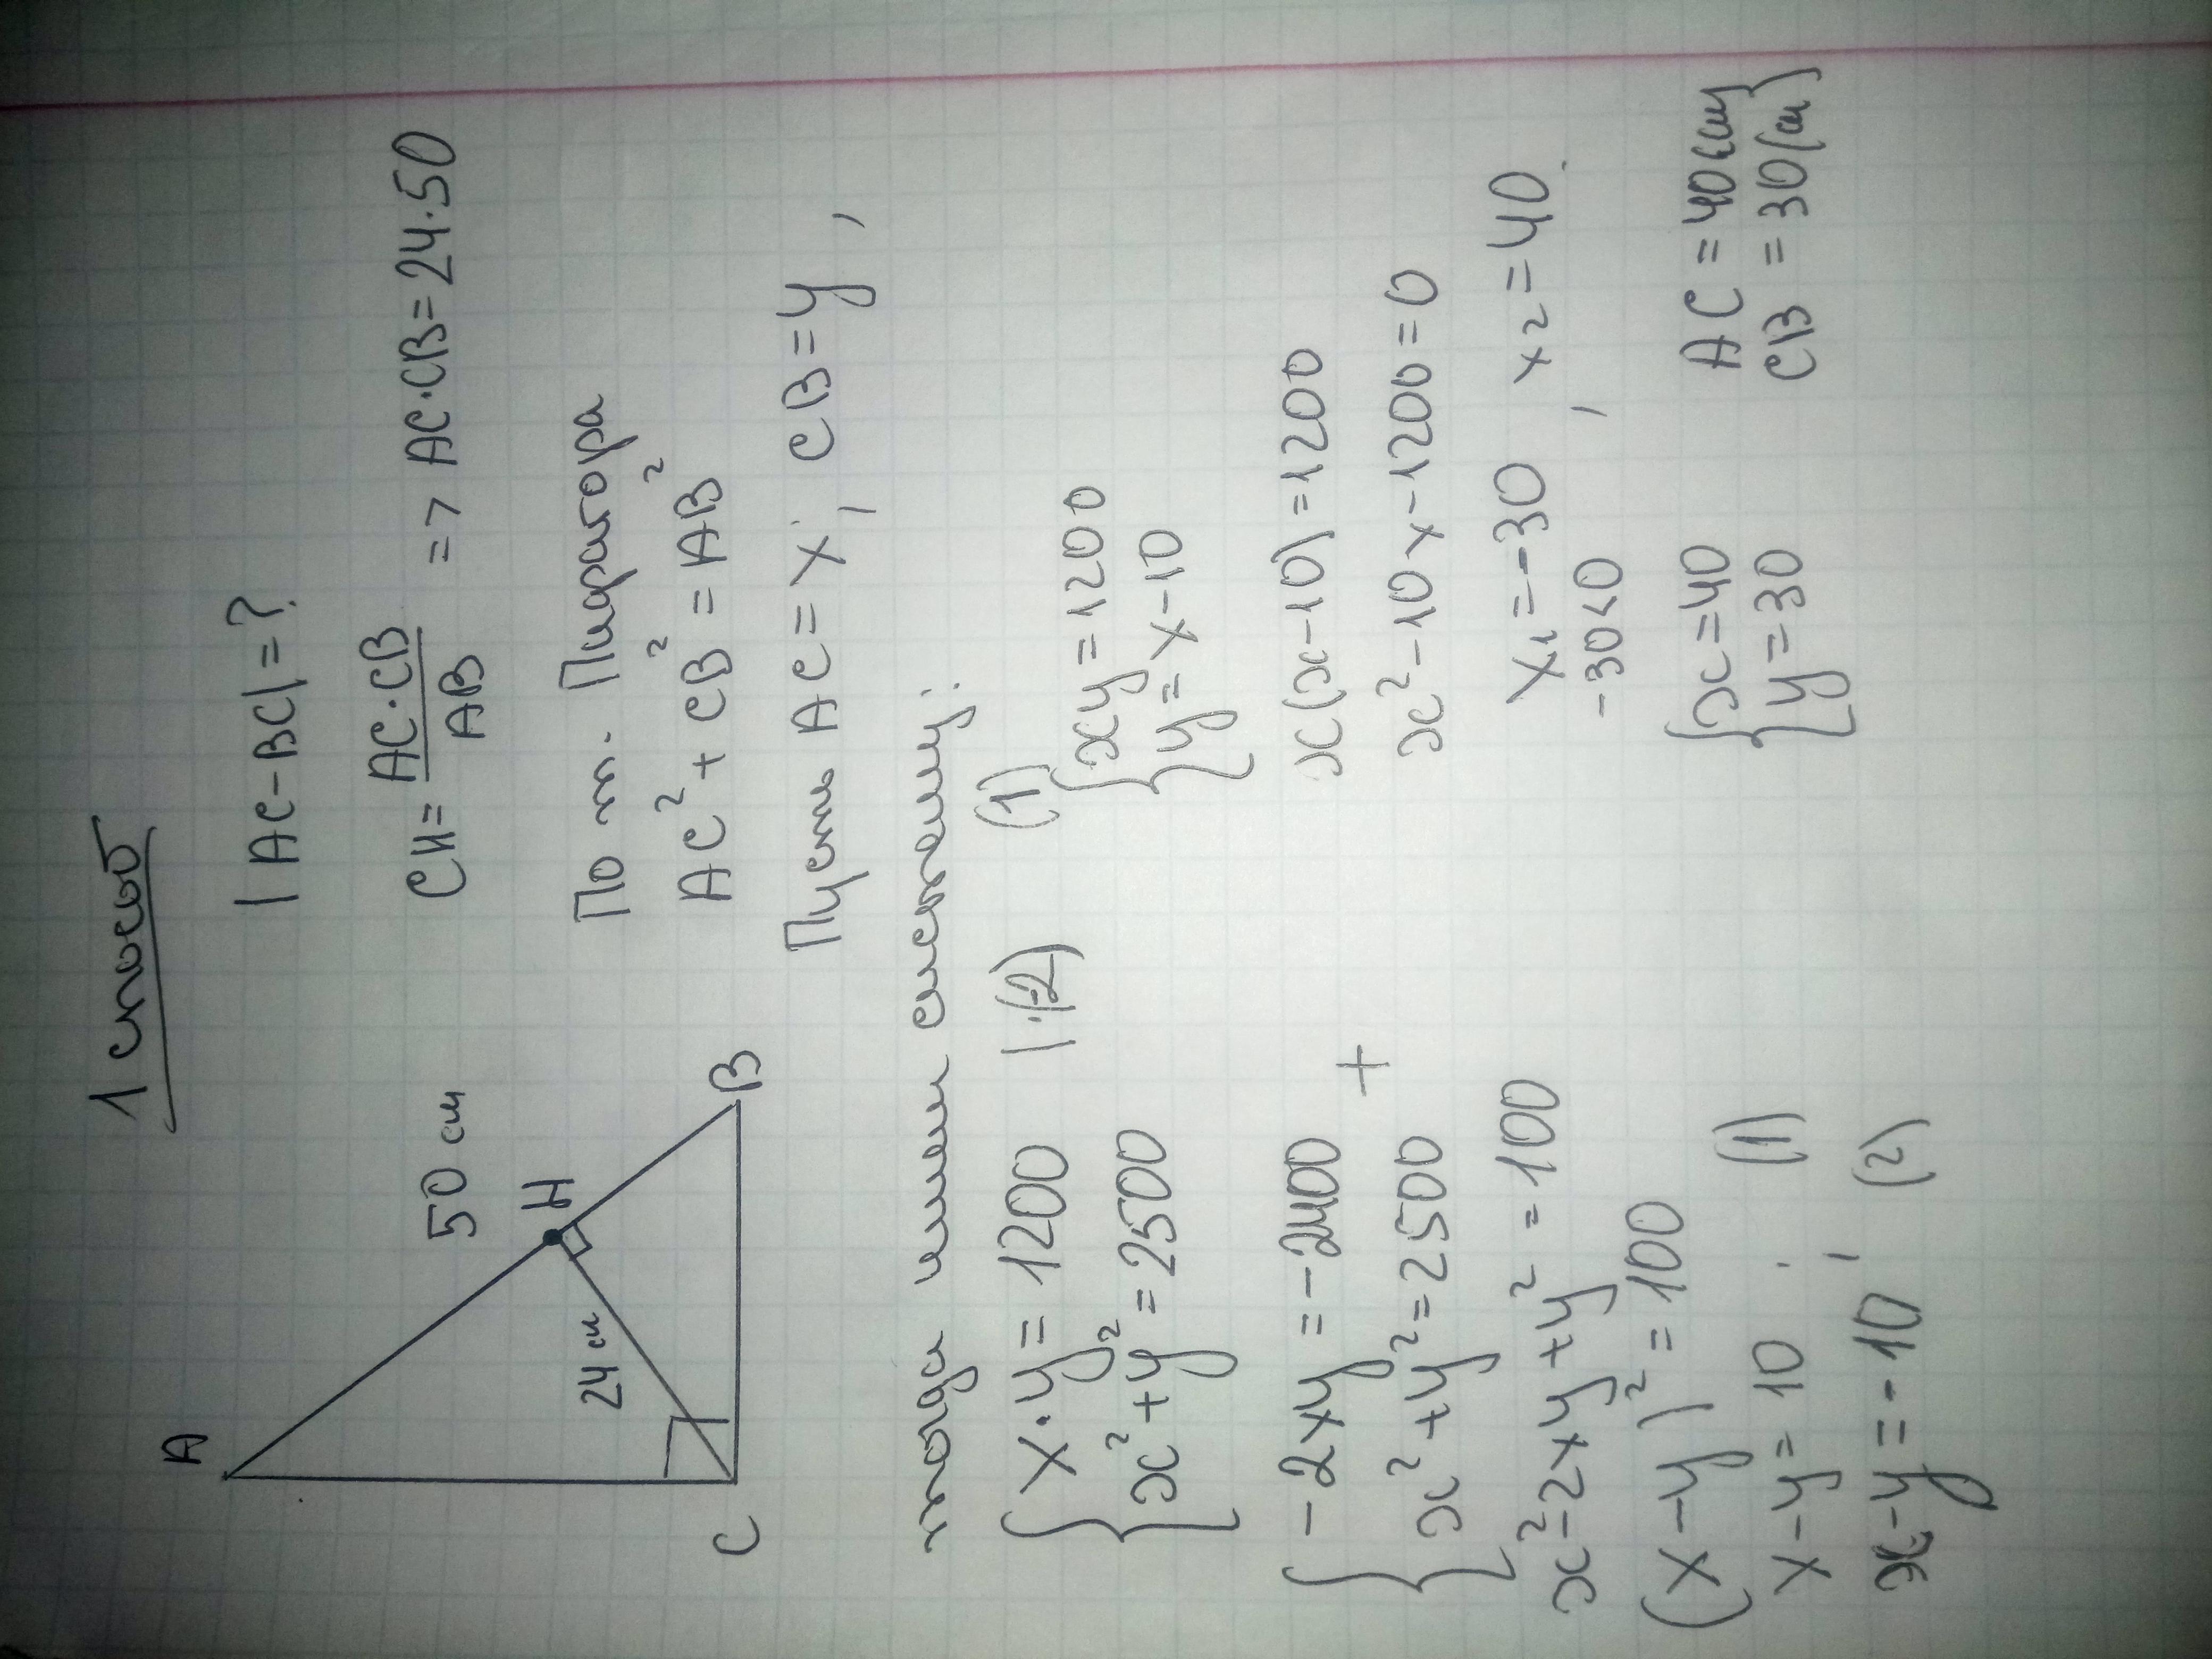 1 способ
A
50 см
H
24 см
C
B
|AC-BC|=?
CH= AC·CB / AB => AC·CB=24·50
По т. Пифагора
AC²+CB²=AB²
Пусть AC=x; CB=y,
тогда имеем систему:
{x·y=1200 |·(-2)
{x²+y²=2500
{-2xy=-2400
+
{x²+y²=2500
x²-2xy+y²=100
(x-y)²=100
x-y=10; (1)
x-y=-10 (2)
(1)
{xy=1200
{y=x-10
x(x-10)=1200
x²-10x-1200=0
x₁=-30, x₂=40.
-30<0
{x=40
{y=30
AC=40(см)
CB=30(см)